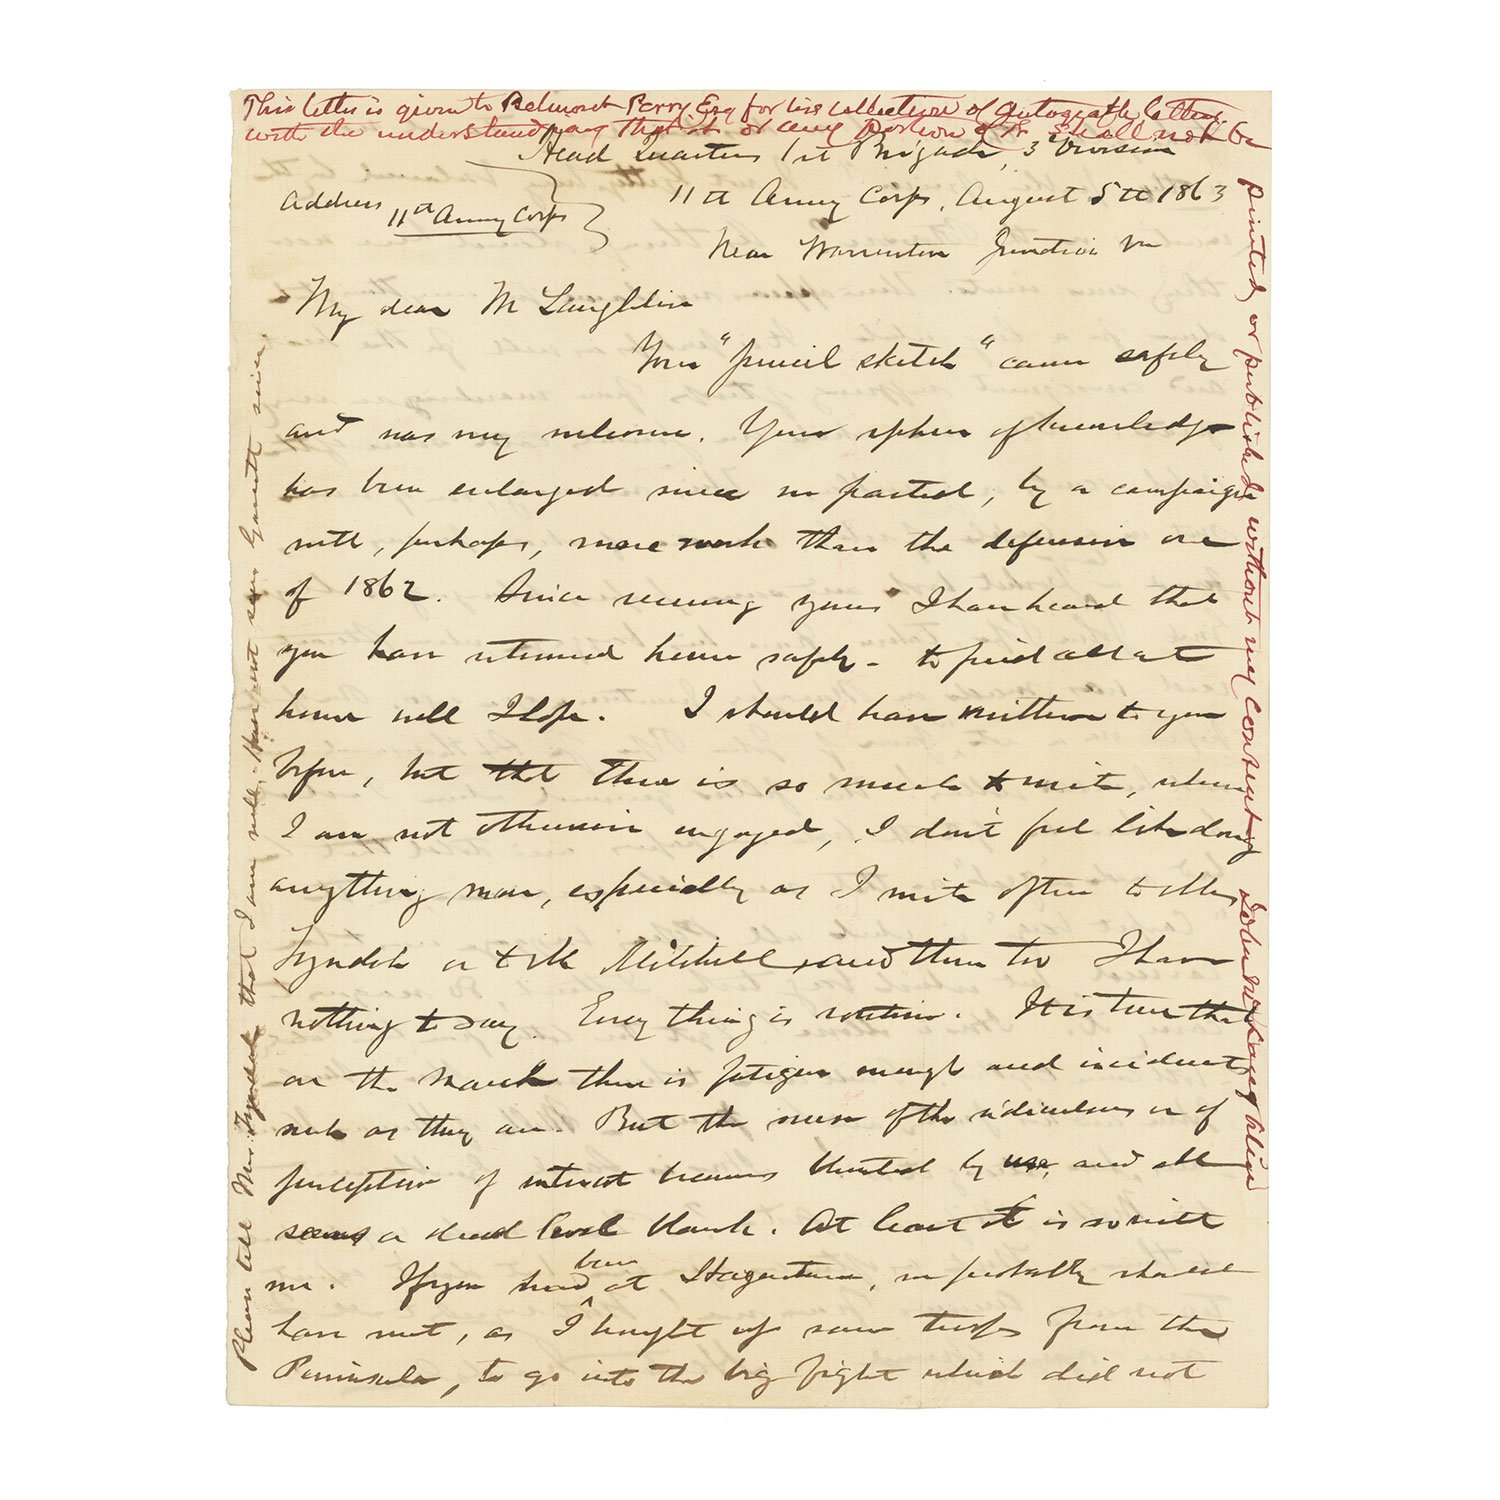 This letter is given to Belmont Perry Esq for his collection of Autograph letters
with the understanding that it or any portion of it shall not be
printed, or published without my consent
John McLaughlin
Head Quarters 1st Brigade, 3 Division
11th Army Corps, August 5th 1863
Near Warrenton Junction Va
Address 11th Army Corps
My dear McLaughlin
Your "pencil sketch" came safely
and was my welcome. Your sphere of knowledge
has been enlarged since we parted, by a campaign
with, perhaps, more work than the defensive one
of 1862. Since receiving yours I have heard that
you have returned home safely - to find all at
home well I hope. I should have written to you
before, but there is so much to write, when
I am not otherwise engaged, I don't feel like doing
anything more, especially as I write often to Mrs
Tyndale or to Mitchell, and then too I have
nothing to say. Every thing is routine. It is true that
on the march there is fatigue enough and incidents
such as they are. But the sense of the ridiculous or of
perception of interest becomes blunted by use, and all
seems a dead level blank. At least it is so with
me. If you had been at Hagerstown, we probably should
have met, as I brought up some troops from the
Peninsula, to go into the big fight which did not
Please tell Mrs. Tyndale that I am well. Have not seen Garrett since.